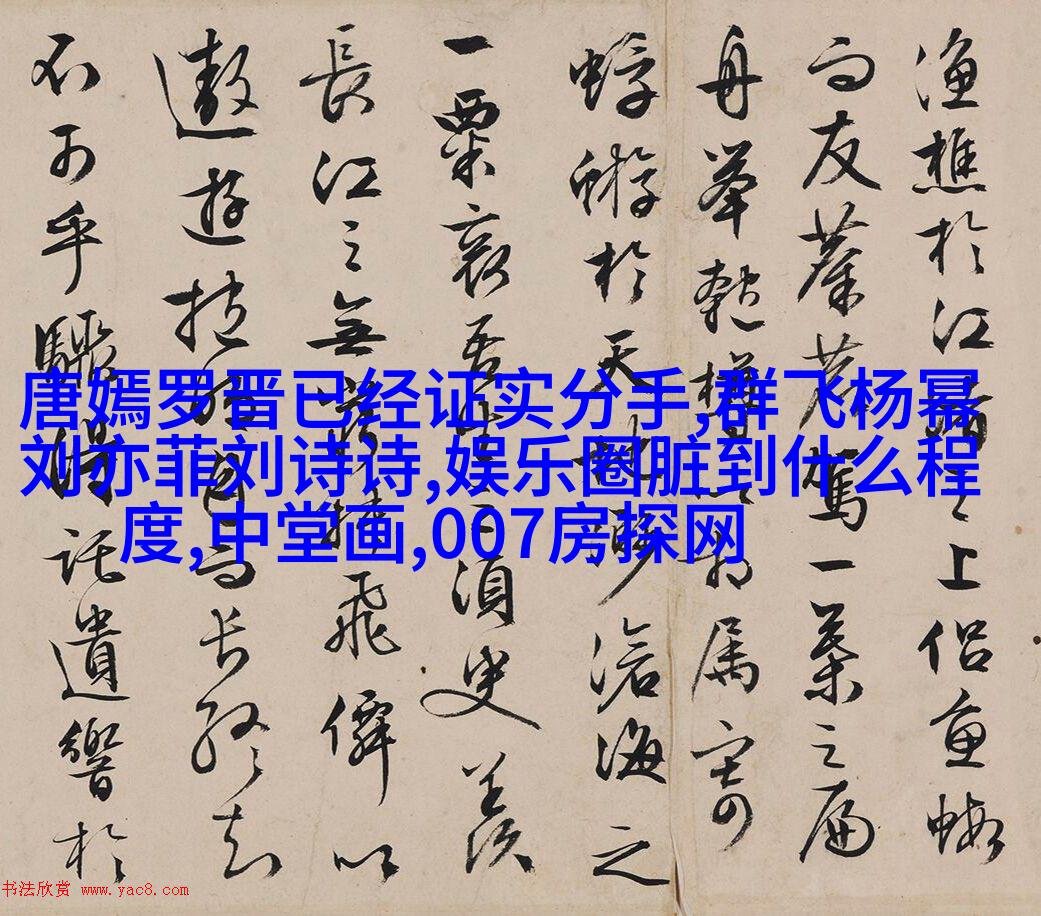 漁樵於江渚之上侣魚蝦
而友麋鹿駕一葉之扁
舟举匏樽以相属寄
蜉蝣於天地渺滄海之
一粟哀吾生之須臾羨
長江之無窮挾飛僊以
遨遊抱明月而长终知
不可乎驟得託遺響於
唐嫣罗晋已经证实分手,群飞杨幂
刘亦菲刘诗诗,娱乐圈脏到什么程
度,中堂画,007房探网
书法欣赏 www.yac8.com